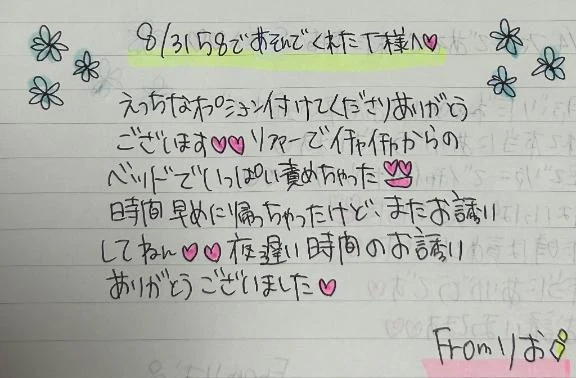 8/31 58であそんでくれたT様へ♡
えっちなオプション付けてくださりありがとう
ございます♡♡ソファーでイチャイチャからの
ベッドでいっぱい責めちゃった♡♡
時間早めに帰っちゃったけど、またお誘い
してねん♡♡夜遅い時間のお誘い
ありがとうございました♡
From りお